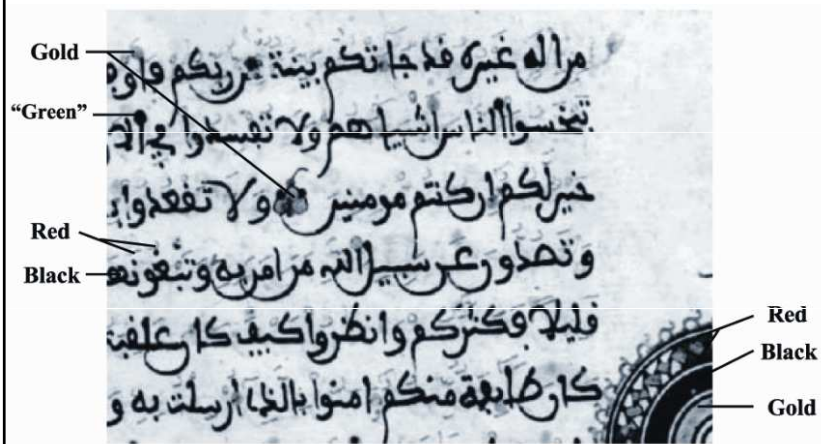 Gold
“Green”
Red
Black
من اله غيره قد جاتكم بينة من ربكم
تبخسوا الناس اشياهم ولا تفسدوا في
خير لكم ان كنتم مومنين ولا تقعدوا
وتصدون عن سبيل الله من امن به وتبغونها
قليلا فكثركم وانظروا كيف كان عقبة
كان طايفة منكم امنوا بالذي ارسلت به و
Red
Black
Gold